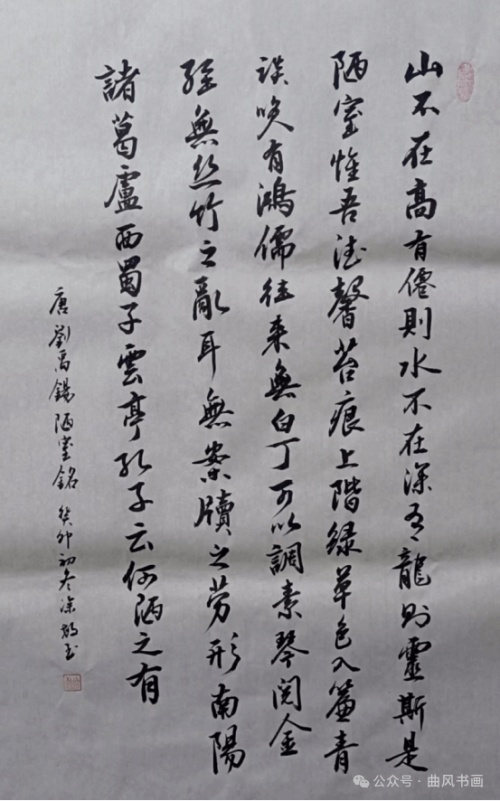 山不在高有僊則水不在深有龍则靈斯是
陋室惟吾德馨苔痕上階緑草色入簾青
談咲有鴻儒往来無白丁可以調素琴閲金
經無丝竹之亂耳無案牘之劳形南陽
諸葛盧西蜀子雲亭孔子云何陋之有
唐劉禹錫陋室銘癸卯初冬涂书
公众号·曲风书画